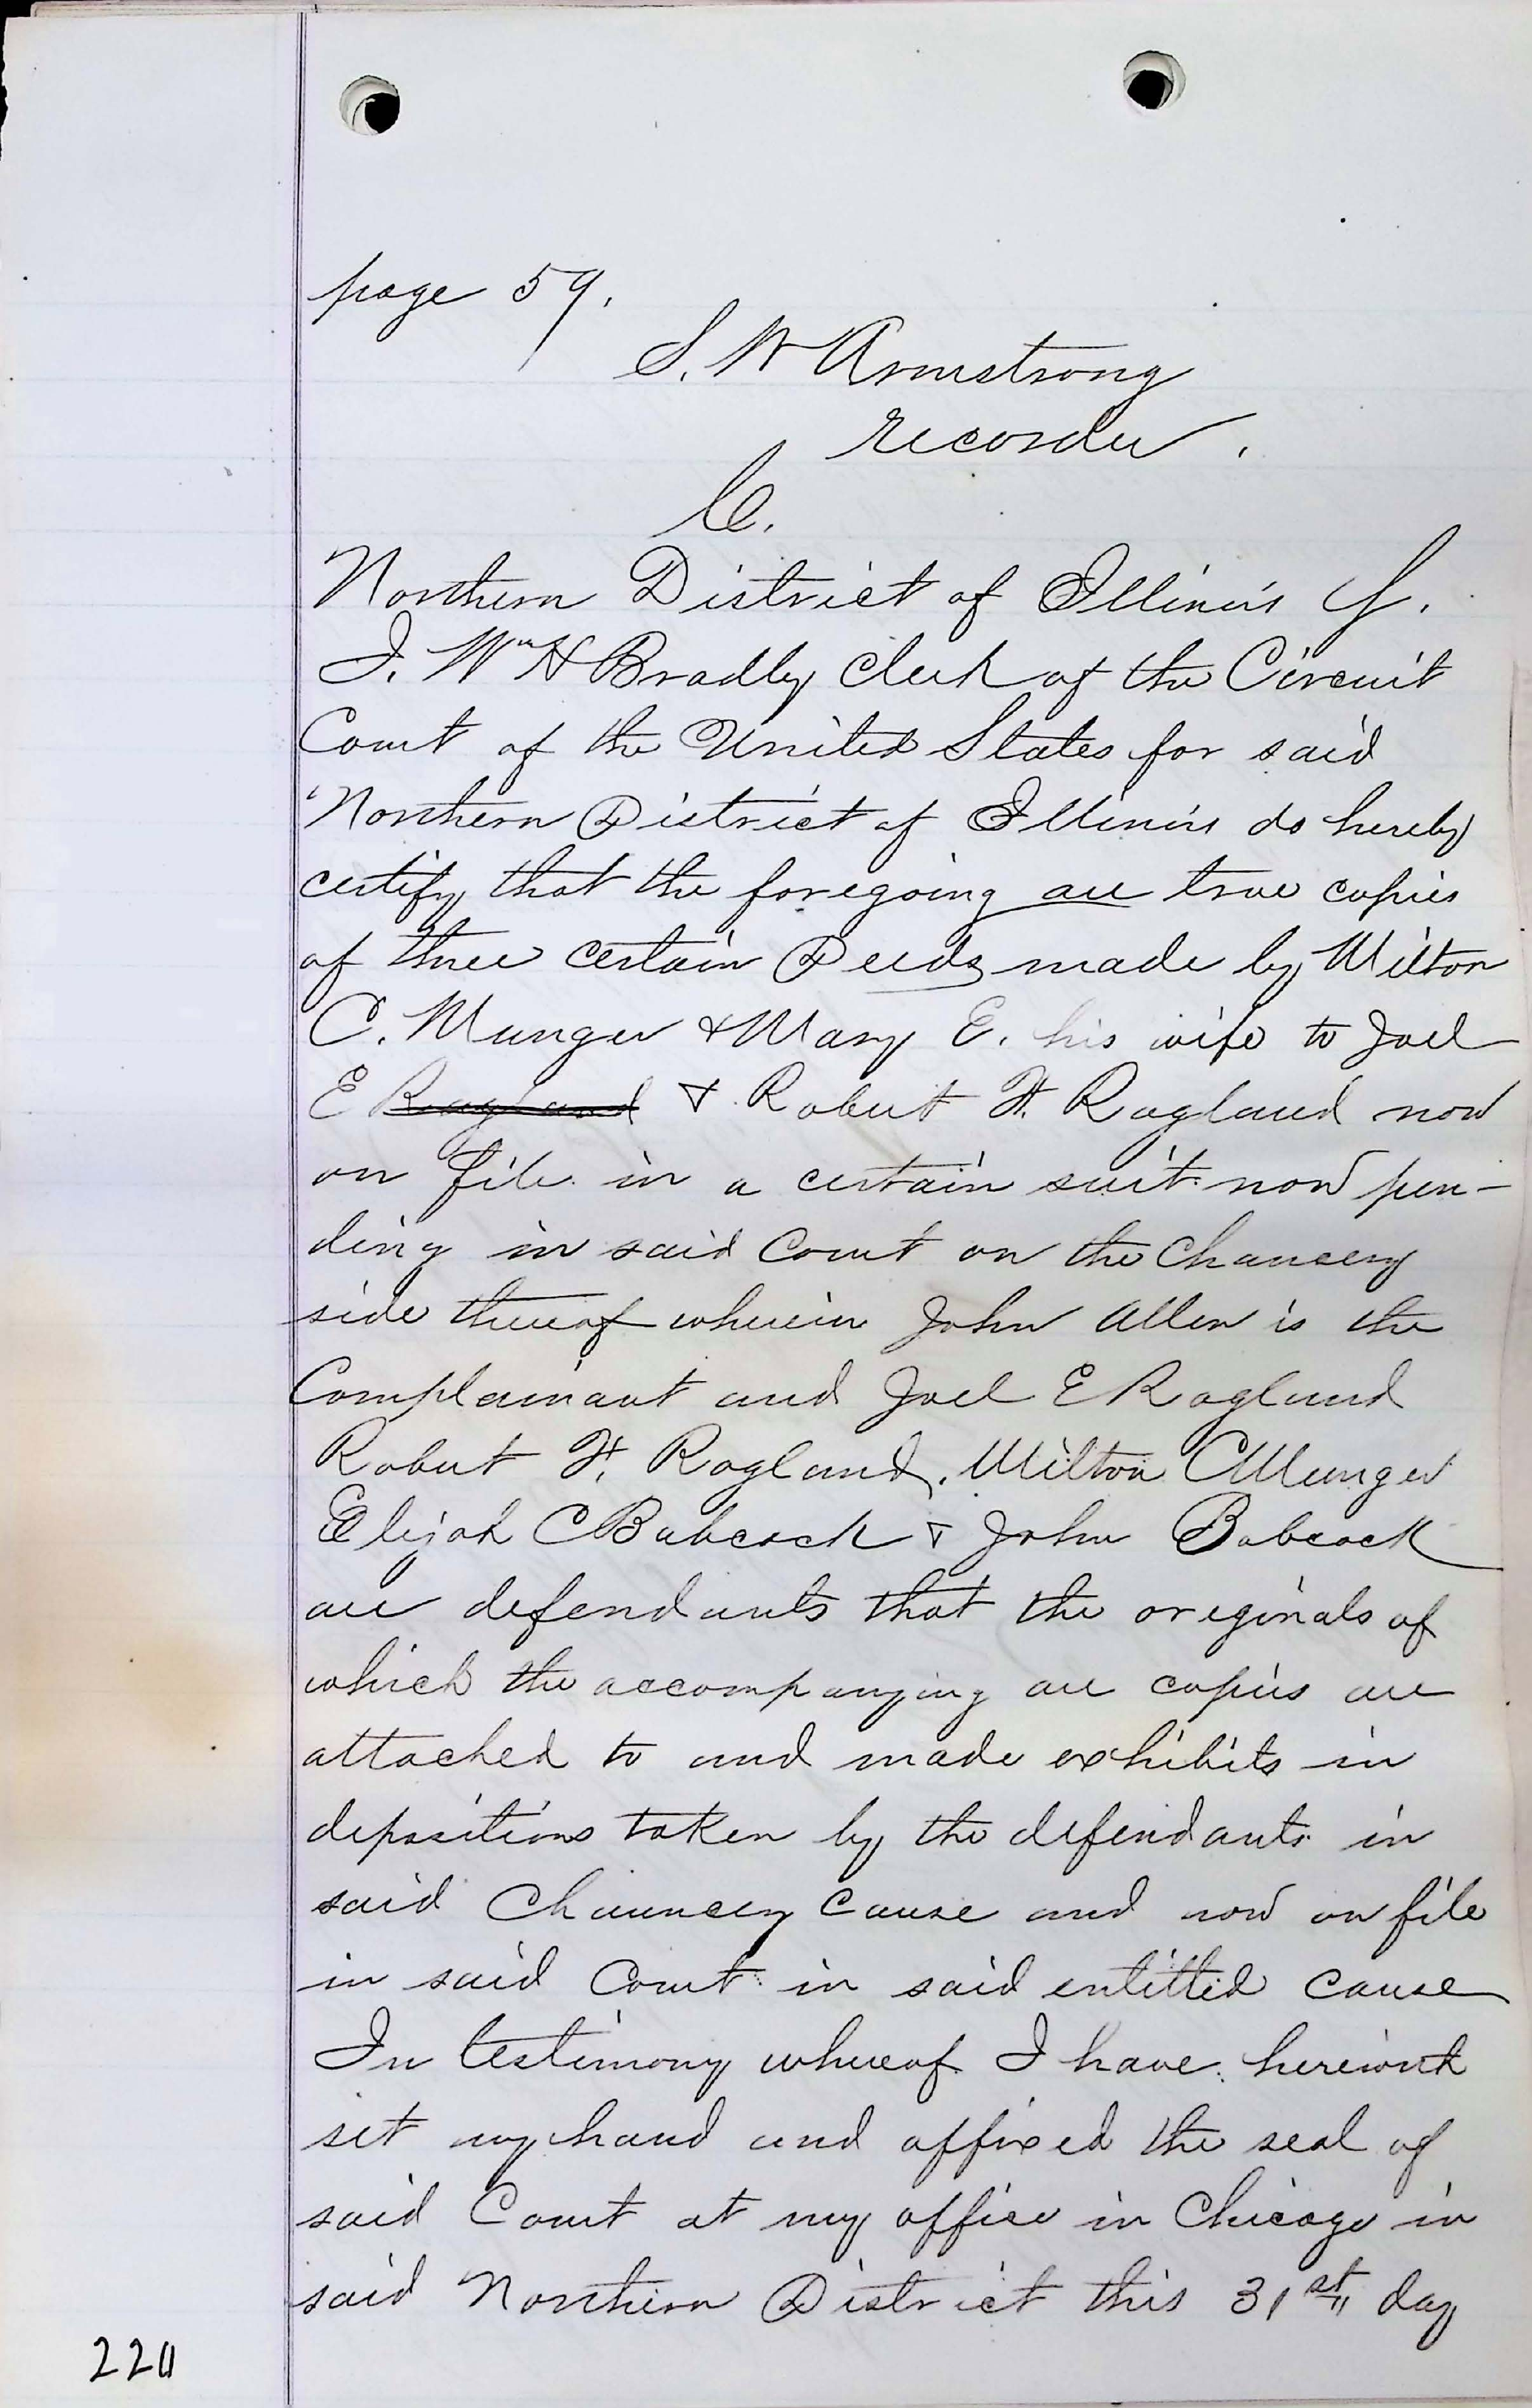 page 59.
S. W Armstrong
recorder.
C.
Northern District of Illinois
I. Wm H Bradly Clerk of the Circuit
Court of the United States for said
Northern District of Illinois do hereby
certify that the foregoing are true copies
of three certain Deeds made by Milton
C. Munger & Mary E. his wife to Joel
E Ragland & Robert H. Ragland now
on file in a certain suit now pen-
ding in said Court on the Chancery
side thereof wherein John Allen is the
Complainant and Joel E Ragland
Robert H. Ragland, Milton C Munger
Elijah C Babcock & John Babcock
are defendants that the originals of
which the accompanying are copies are
attached to and made exhibits in
depositions taken by the defendants in
said Chauncery Cause and now on file
in said Court in said entitled cause
In testimony whereof I have
set my hand and affixed the seal of
said Court at my office in Chicago in
said Northern District this 31st day